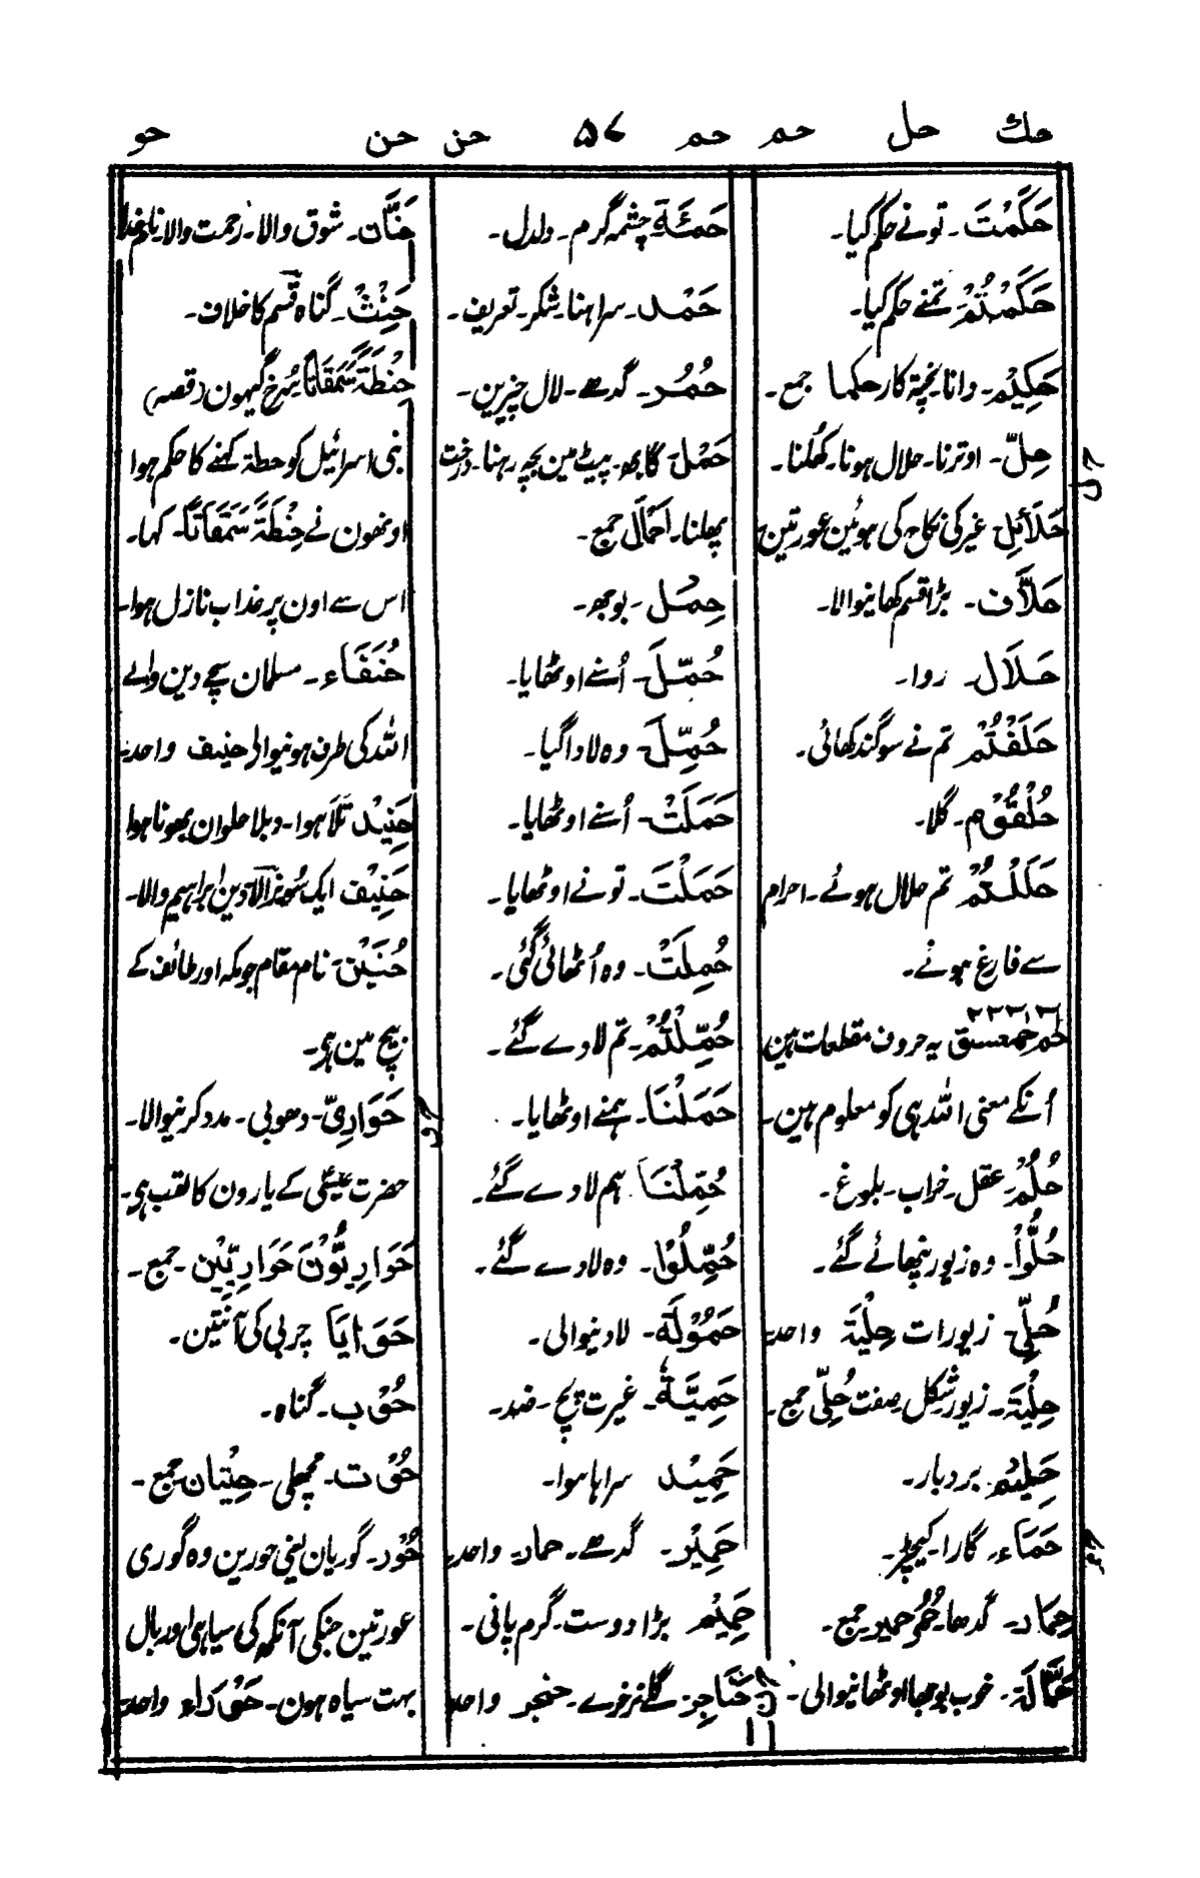 حك حل حم ۵۷ حم حن حن حو
حَكَمْتَ۔ تو نے حکم کیا۔
حَكَمْتُمْ۔ تمنے حکم کیا۔
حَكِيْم۔ دانا پختہ کار حکما جمع۔
حِلّ۔ اوترنا۔ حلال ہونا۔ کھُلنا۔
حَلَائِل۔ غیر کی نکاح کی ہوئین عورتین
حَلَّاف۔ بڑا قسم کھانیوالا۔
حَلَال۔ روا۔
حَلَفْتُمْ تم نے سوگند کھائی۔
حُلْقُوْم۔ گلا۔
حَلَلْتُمْ تم حلال ہوئے۔ احرام
سے فارغ ہوئے۔
حم حمعسق یہ حروف مقطعات ہین
اُنکے معنی اللہ ہی کو معلوم ہین۔
حُلُمْ۔ عقل۔ خواب۔ بلوغ۔
حُلُّوْا۔ وہ زیور پنہائے گئے۔
حُلِّيّ زیورات حِلْيَة واحد
حِلْيَة۔ زیور شکل صفت حُلِيّ جمع۔
حَلِيْم۔ بردبار۔
حَمَاء۔ گارا۔ کیچڑ۔
حِمَار۔ گدھا۔ حُمُر حمیر جمع۔
حَمَّالَة۔ خوب بوجھا اوٹھانیوالی۔
حَمِئَة چشمہ گرم۔ دلدل۔
حَمْد۔ سراہنا۔ شکر۔ تعریف۔
حُمُر۔ گدھے۔ لال چیزین۔
حَمْل گابھ۔ پیٹ مین بچہ رہنا۔ درخت
پھلنا۔ اَحْمَال جمع۔
حِمْل۔ بوجھ۔
حُمِّلَ۔ اُسنے اوٹھایا۔
حُمِّلَ۔ وہ لادا گیا۔
حَمَلَتْ۔ اُسنے اوٹھایا۔
حَمَلْتَ۔ تو نے اوٹھایا۔
حُمِلَتْ۔ وہ اُٹھائی گئی۔
حُمِّلْتُمْ۔ تم لادے گئے۔
حَمَلْنَا۔ ہمنے اوٹھایا۔
حُمِّلْنَا۔ ہم لادے گئے۔
حُمِّلُوْا۔ وہ لادے گئے۔
حَمُوْلَة۔ لادنیوالی۔
حَمِيَّة۔ غیرت پیچ۔ ضد۔
حَمِيْد سراہا ہوا۔
حَمِيْر۔ گدھے۔ حمار واحد
حَمِيْم بڑا دوست۔ گرم پانی۔
حَنَاجِر گلے نرخرے۔ حنجر واحد
حَنَّان۔ شوق والا۔ رحمت والا۔ نام خدا
حِنْث۔ گناہ قسم کا خلاف۔
حِنْطَةً سَمَقَاتًا سُرخ گیہون (قصہ)
بنی اسرائیل کو حطة کہنے کا حکم ہوا
اونھون نے حِنْطَةً سَمَقَاتًا۔ کہا۔
اس سے اون پر عذاب نازل ہوا۔
حُنَفَاء۔ مسلمان سچے دین والے
اللہ کی طرف ہونیوالی حنیف واحد
حَنِيْذ تَلَا ہوا۔ دبلا حلوان بھونا ہوا
حَنِيْف ایک سُو دین ابراہیم والا۔
حُنَيْن۔ نام مقام جو مکہ اور طائف کے
بیچ مین ہی۔
حَوَارِيّ۔ دھوبی۔ مدد کرنیوالا۔
حضرت عیسیٰ کے یارون کا لقب ہی۔
حَوَارِيُّوْنَ حَوَارِيِّيْن۔ جمع۔
حَوَايَا چربی کی آنتین۔
حُوْب۔ گناہ۔
حُوْت۔ مچھلی۔ حِيْتَان جمع۔
حُوْر۔ گوریان یعنی حورین وہ گوری
عورتین جنکی آنکھ کی سیاہی اور بال
بہت سیاہ ہون۔ حَوْرَاء واحد